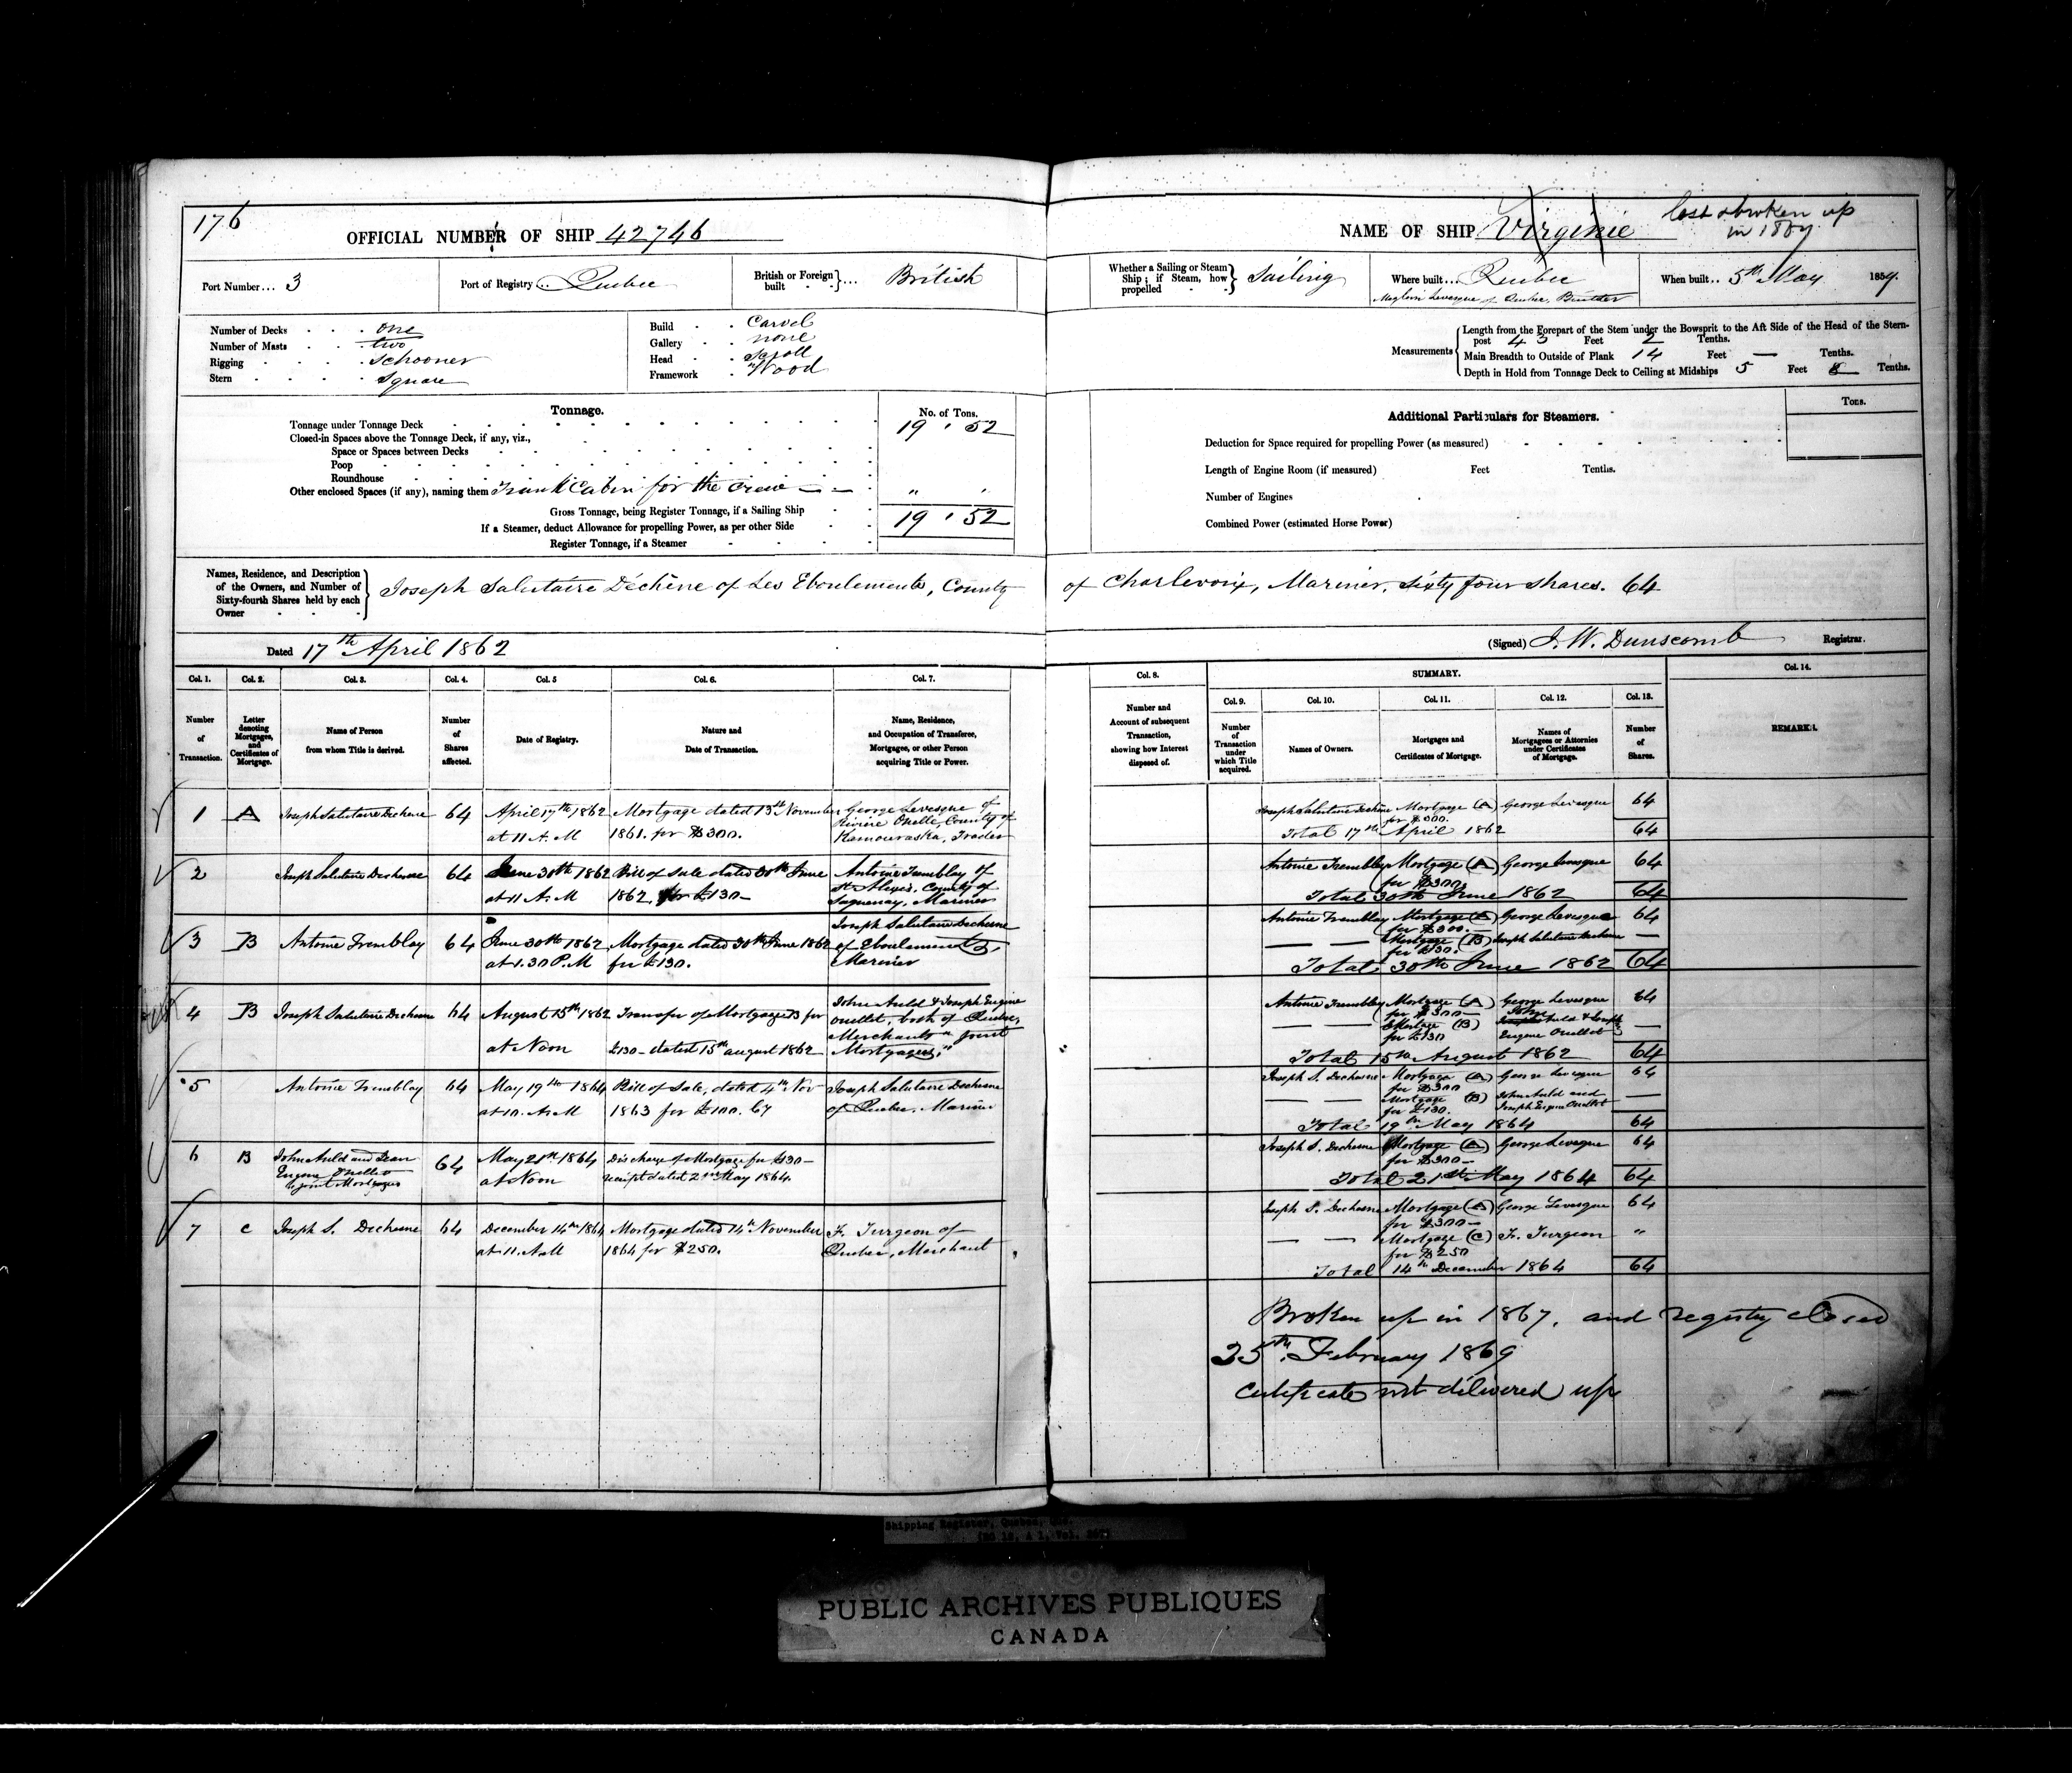 176
OFFICIAL NUMBER OF SHIP 42746
Port Number... 3
Port of Registry... Quebec
British or Foreign built ... British
Number of Decks one
Number of Masts two
Rigging Schooner
Stern Square
Build Carvel
Gallery none
Head Scroll
Framework Wood
Tonnage.
No. of Tons.
Tonnage under Tonnage Deck 19 , 52
Closed-in Spaces above the Tonnage Deck, if any, viz.,
Space or Spaces between Decks
Poop
Roundhouse
Other enclosed Spaces (if any), naming them Trunk Cabin for the Crew — — " ,
Gross Tonnage, being Register Tonnage, if a Sailing Ship 19 , 52
If a Steamer, deduct Allowance for propelling Power, as per other Side
Register Tonnage, if a Steamer
NAME OF SHIP Virginie
lost or broken up
in 1867
Whether a Sailing or Steam Ship; if Steam, how propelled Sailing
Where built... Quebec
Levesque of Quebec, Builder
When built.. 5th May 1859.
Measurements
Length from the Forepart of the Stem under the Bowsprit to the Aft Side of the Head of the Stern-
post 43 Feet 2 Tenths.
Main Breadth to Outside of Plank 14 Feet — Tenths.
Depth in Hold from Tonnage Deck to Ceiling at Midships 5 Feet 8 Tenths.
Additional Particulars for Steamers.
Tons.
Deduction for Space required for propelling Power (as measured)
Length of Engine Room (if measured) Feet Tenths.
Number of Engines
Combined Power (estimated Horse Power)
Names, Residence, and Description
of the Owners, and Number of
Sixty-fourth Shares held by each
Owner
Joseph Salutaire Déchêne of Les Eboulements, County of Charlevoix, Mariner, Sixty four shares. 64
Dated 17th April 1862
(Signed) J. W. Dunscomb Registrar.
Col. 1. Col. 2. Col. 3. Col. 4. Col. 5 Col. 6. Col. 7.
Number of Transaction.
Letter denoting Mortgages, and Certificates of Mortgage.
Name of Person from whom Title is derived.
Number of Shares affected.
Date of Registry.
Nature and Date of Transaction.
Name, Residence, and Occupation of Transferee, Mortgagee, or other Person acquiring Title or Power.
1 A Joseph Salutaire Dechene 64 April 17th 1862 Mortgage dated 13th November George Levesque of
at 11 A.M 1861. for $300. Rivière Ouelle County of
Kamouraska, Trader
2 Joseph Salutaire Dechesne 64 June 30th 1862 Bill of Sale dated 30th June Antoine Tremblay of
at 11 A.M 1862 for £130— St Alexis, County of
Saguenay, Mariner
3 B Antoine Tremblay 64 June 30th 1862 Mortgage dated 30th June 1862 Joseph Salutaire Dechesne
at 1.30 P.M for £130. of Eboulements,
Mariner
4 B Joseph Salutaire Dechesne 64 August 15th 1862 Transfer of Mortgage B for John Auld & Joseph Eugene
at Noon £130— dated 15th august 1862 Ouellet, both of Quebec,
Merchants "joint
Mortgagees"
5 Antoine Tremblay 64 May 19th 1864 Bill of Sale, dated 4th Nov Joseph Salutaire Dechesne
at 10. A.M 1863 for £100. Cy of Quebec. Mariner
6 B John Auld and Jean 64 May 21st 1864 Discharge of Mortgage for £130—
Eugene Ouellet at Noon receipt dated 2nd May 1864.
joint Mortgagees
7 C Joseph S. Dechesne 64 December 14th 1864 Mortgage dated 14th November F. Turgeon of
at 11. A.M 1864 for $250. Quebec, Merchant
Col. 8. SUMMARY. Col. 14.
Col. 9. Col. 10. Col. 11. Col. 12. Col. 13.
Number and Account of subsequent Transaction, showing how Interest disposed of.
Number of Transaction under which Title acquired.
Names of Owners.
Mortgages and Certificates of Mortgage.
Names of Mortgagees or Attornies under Certificates of Mortgage.
Number of Shares.
REMARKS.
Joseph Salutaire Dechêne Mortgage (A) George Levesque 64
for $300.
Total 17th April 1862 64
Antoine Tremblay Mortgage (A) George Levesque 64
for $300
Total 30th June 1862 64
Antoine Tremblay Mortgage (A) George Levesque 64
for $300.—
— — Mortgage (B) Joseph Salutaire Dechesne —
for £130.
Total 30th June 1862 64
Antoine Tremblay Mortgage (A) George Levesque 64
for $300—
— — Mortage (B) John Auld & Joseph —
for £130 Eugene Ouellet
Total 15th August 1862 64
Joseph S. Dechesne Mortgage (A) George Levesque 64
for $300
— — Mortgage (B) John Auld and —
for £130. Joseph Eugene Ouellet
Total 19th May 1864 64
Joseph S. Dechesne Mortgage (A) George Levesque 64
for $300—
Total 21st May 1864 64
Joseph S. Dechesne Mortgage (A) George Levesque 64
for $300—
— — Mortgage (C) F. Turgeon "
for $250
Total 14th December 1864 64
Broken up in 1867. and registry closed
25th February 1869
Certificate not delivered up
Shipping Register, Quebec, Que.
PUBLIC ARCHIVES PUBLIQUES
CANADA